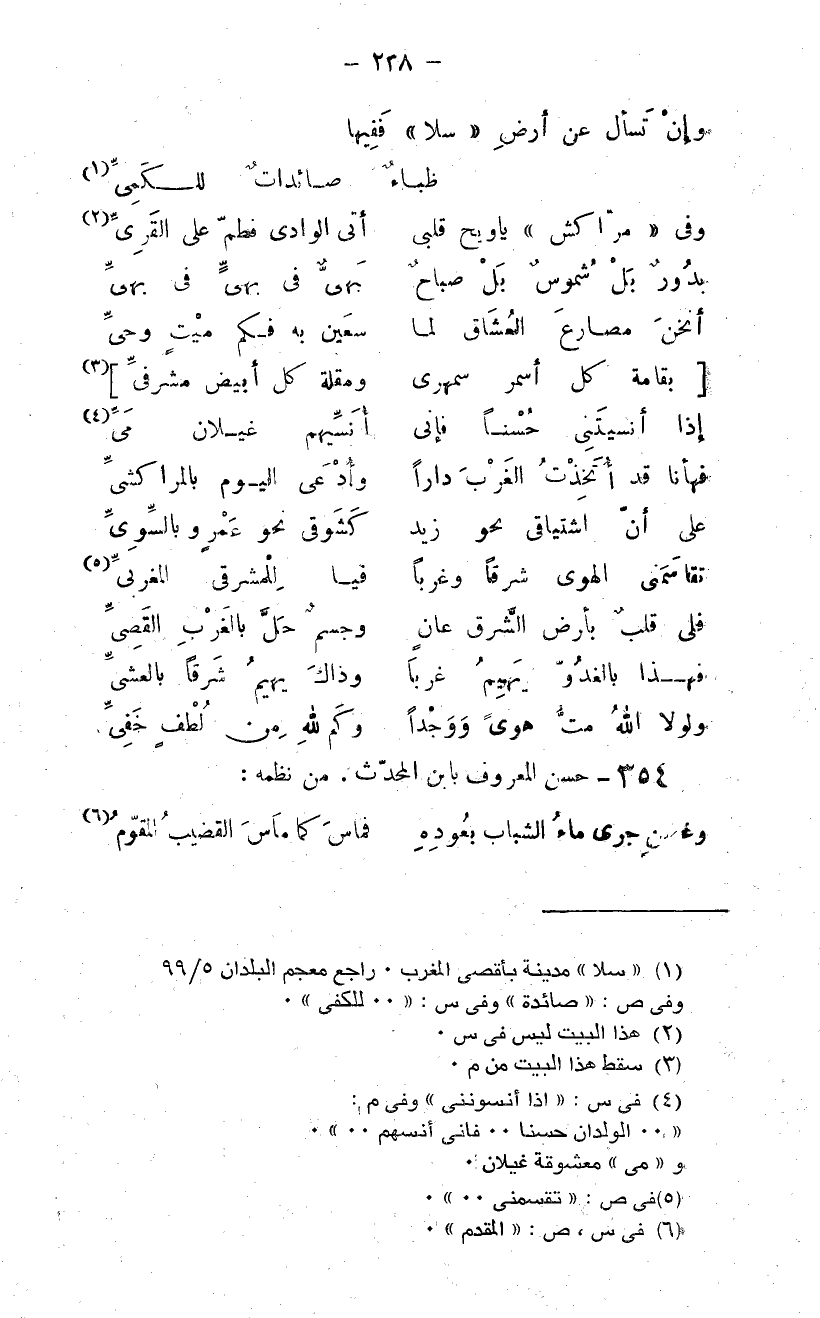 – ٢٣٨ –
وإنْ تَسأل عن أرضِ « سلا » فَفِيها
ظباءٌ صائداتٌ للكَمِىِّ (١)
وفى « مرّاكش » ياويح قلبى أتى الوادى فطمّ على القَرِىِّ (٢)
بدُورٌ بَلْ شُموسٌ بَلْ صباحٌ بَهِىٌّ فى بهىٍّ فى بهىِّ
أنخنَ مصارعَ العُشَاق لما سعَين به فكم ميْتٍ وحىِّ
[ بقامة كل أسمر سمهرى ومقلة كل أبيض مشرفىِّ ] (٣)
إذا أنسيتَنِى حُسْناً فإنى أُنَسِّيهم غيلان مَىِّ (٤)
فهأنا قد أُتَّخِذْتُ الغَرْبَ داراً وأُدْعَى اليوم بالمراكشىِّ
على أنّ اشتياقى نحو زيد كَشَوقى نحو عَمْرٍو بالسَّوِىِّ
تقاسَمَنى الهوى شرقاً وغرباً فيا لِلْمشرقى المغربىِّ (٥)
فلى قلبٌ بأرض الشَّرق عانٍ وجسمٌ حَلَّ بالغَرْبِ القَصِىِّ
فهذا بالغدُوّ يَهِيمُ غرباً وذاكَ يهيمُ شَرقاً بالعشىِّ
ولولا اللهُ متُّ هوىً وَوَجْداً وكَم للهِ مِن لُطْفٍ خَفِىِّ
٣٥٤ – حسن المعروف بابن المحدّث . من نظمه :
وغصنٍ جرى ماءُ الشباب بعُودِهِ فماسَ كما ماَسَ القضيبُ المقوّمُ (٦)
(١) « سلا » مدينة بأقصى المغرب ٠ راجع معجم البلدان ٩٩/٥
وفى ص : « صائدة » وفى س : « ٠٠ للكفى » ٠
(٢) هذا البيت ليس فى س ٠
(٣) سقط هذا البيت من م ٠
(٤) فى س : « اذا أنسوننى » وفى م :
« ٠٠ الولدان حسنا ٠٠ فانى أنسهم ٠٠ » ٠
و « مى » معشوقة غيلان ٠
(٥)فى ص : « تقسمنى ٠٠ » ٠
(٦) فى س ، ص : « المقدم » ٠